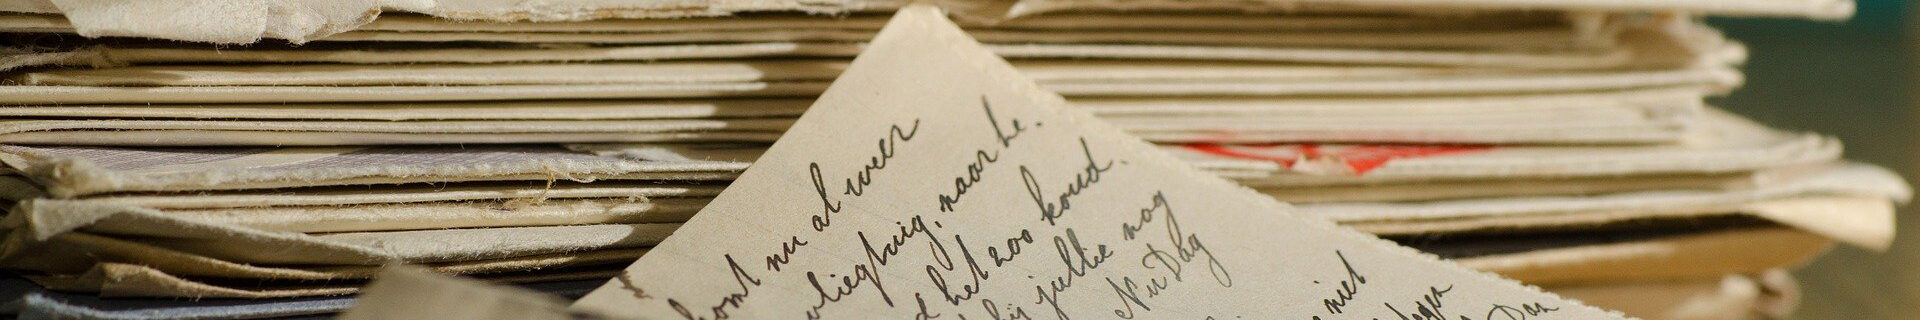 komt nu al weer
vliegtuig, naar he.
d het zoo koud.
bij jullie nog
Nu Dag
niet
Dan